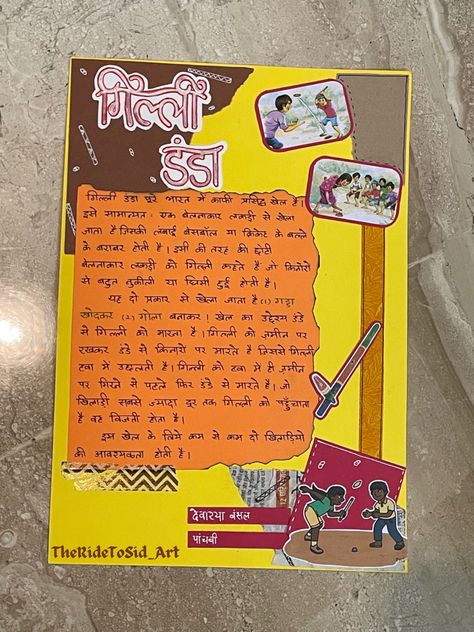 गिल्ली
डंडा
गिल्ली डंडा पूरे भारत में काफी प्रसिद्ध खेल है।
इसे सामान्यतः एक बेलनाकार लकड़ी से खेला
जाता है जिसकी लंबाई बेसबॉल या क्रिकेट के बल्ले
के बराबर होती है। इसी की तरह की छोटी
बेलनाकार लकड़ी को गिल्ली कहते हैं जो किनारों
से बहुत नुकीली या घिसी हुई होती है।
यह दो प्रकार से खेला जाता है (1) गड्ढा
खोदकर (2) गोला बनाकर। खेल का उद्देश्य डंडे
से गिल्ली को मारना है। गिल्ली को ज़मीन पर
रखकर डंडे से किनारों पर मारते हैं जिससे गिल्ली
हवा में उछलती है। गिल्ली को हवा में ही ज़मीन
पर गिरने से पहले फिर डंडे से मारते है। जो
खिलाड़ी सबसे ज्यादा दूर तक गिल्ली को पहुँचाता
है वह विजती होता है।
इस खेल के लिये कम से कम दो खिलाड़ियों
की आवश्यकता होती है।
देवारया बंसल
पांचवी
TheRideToSid_Art